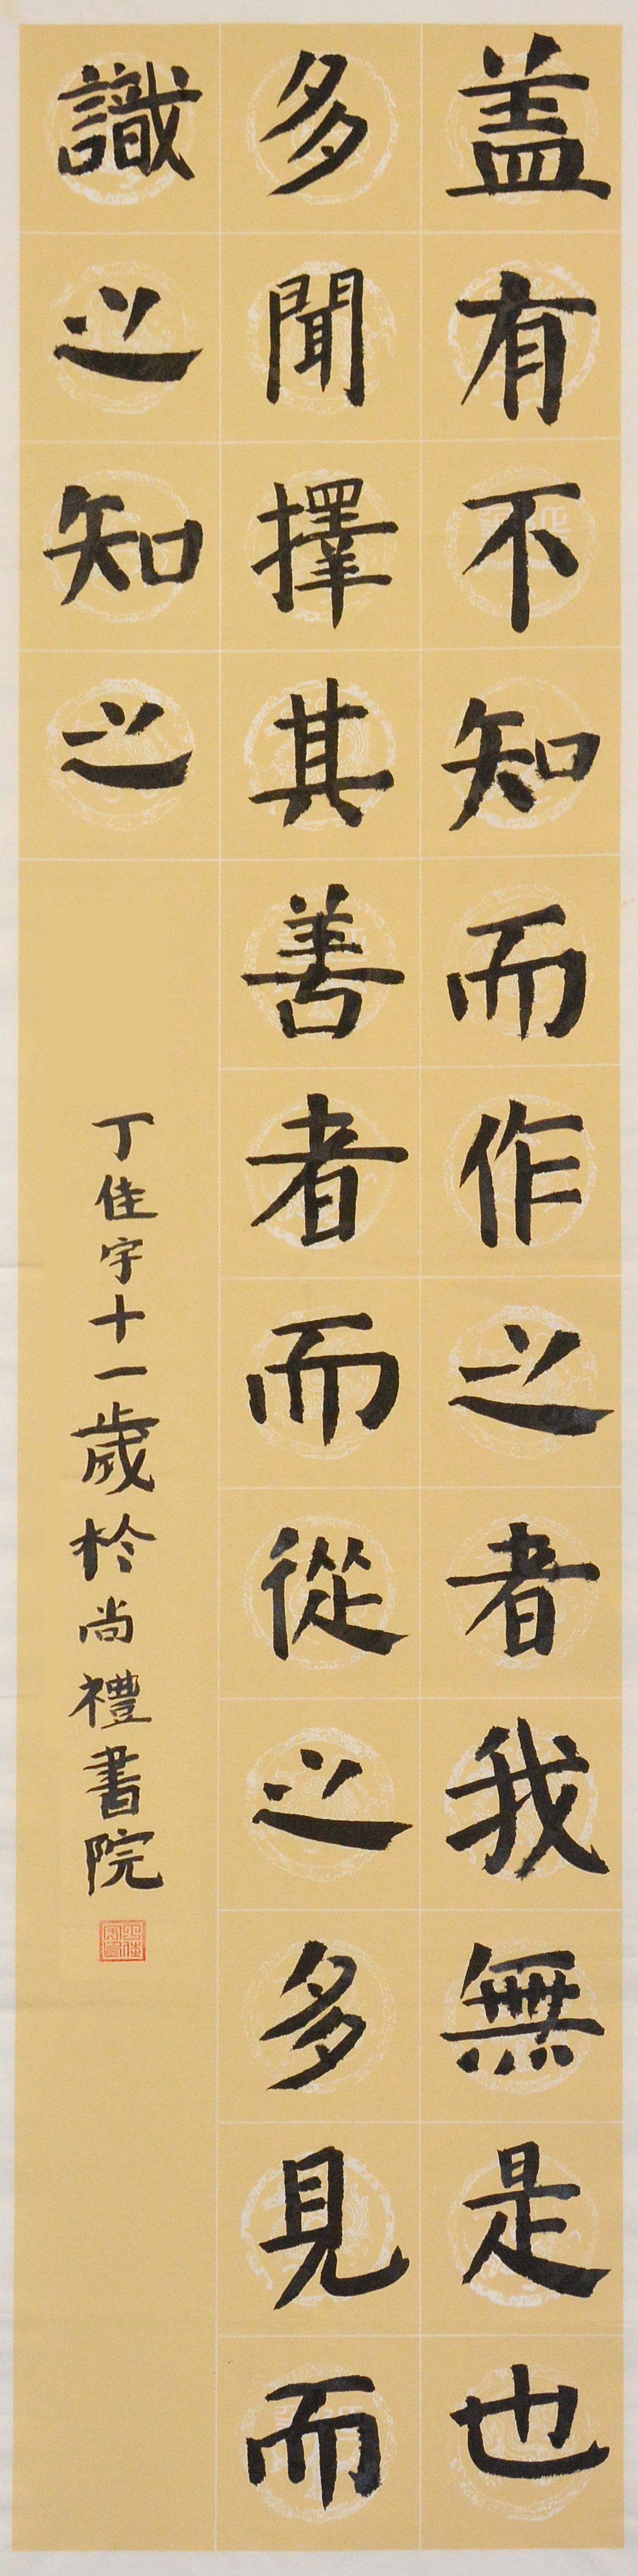 盖有不知而作之者我無是也
多聞擇其善者而從之多見而
識之知之
丁佳宇十一歲於尚禮書院